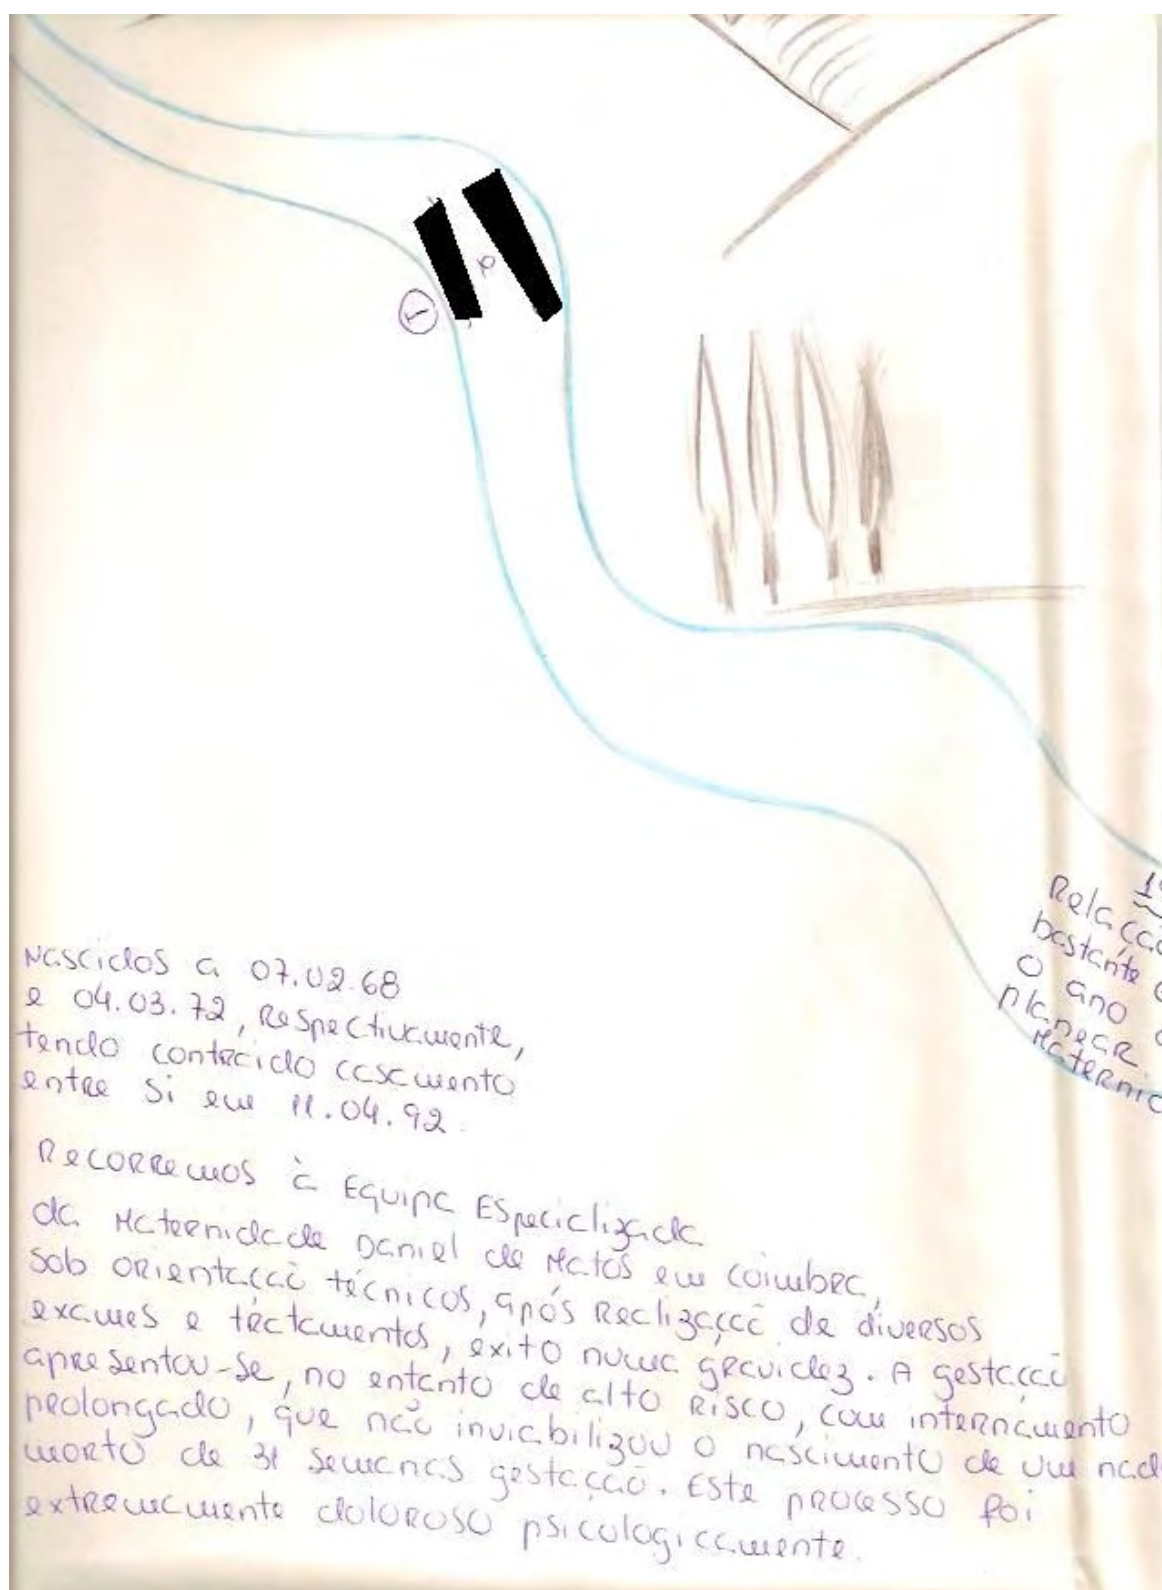 ①
e
1º
Relaçaõ
bastante
O ano
planear
Maternid
Nascidos a 07.02.68
e 04.03.72, Respectivamente,
tendo contraído casamento
entre si em 11.04.92.
Recorremos à Equipa Especializada
da Maternidade Daniel de Matos em Coimbra,
sob orientaçaõ técnicos, após Realizaçaõ de diversos
exames e tractamentos, exito numa gravidez. A gestaçaõ
apresentou-se, no entanto de alto Risco, com internamento
prolongado, que naõ inviabilizou o nascimento de um nad
morto de 31 semanas gestaçaõ. Este processo foi
extremamente doloroso psicologicamente.